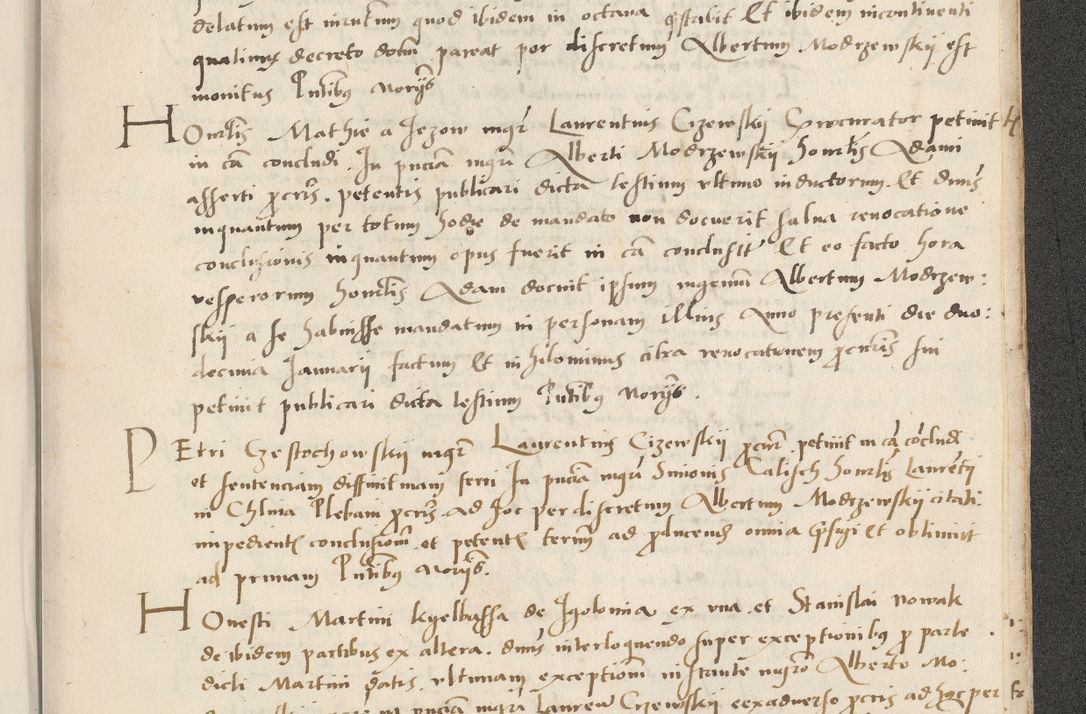 delatum est iniunctum quod ibidem in octava q̃stabit Et ibidem incontinenti
qualiing decreto dotũ pareat per discretum Albertum Modrzewskij est
monitus Pñtibus Norijs
Honrlis Mathie a Jezow mgr̃ Laurentius Cizewskij Procurator petiuit
in cã concludi. In pñciã mgri Alberti Modrzewskij honrlis Adami
asserti p̃cris. petentis publicari dicta testium vltimo inductorum. Et dñus
inquantum per totum hodie de mandato non docuerit salua reuocatione
conclusionis inquantum opus fuerit in cã conclusit Et eo facto hora
vesperorum honrlis Adam docuit ipsum ingenuũ Albertum Modrzew:
skij a se habuisse mandatum in personam illius Anno presenti die duo:
decima Januarij factum Et nihilominus citra reuocationem p̃curis sui
petiuit publicari dicta testium Pñtibus Norijs.
PEtri Czestochowskij mgr̃ Laurentius Cizewskij p̃cur̃ petiuit in cã cõcludi
et sententiam diffinitiuam ferri In pñciã mgri Simonis Calisch honrlis Laurẽtij
in Chlina Plebani p̃cris. ad hoc per discretum Albertum Modrzewskij citati
impedientis conclusionẽ et petentis terminũ ad p̃ducendũ omnia p̃figi Et obtinuit
ad primam Pñtibus Norijs.
HOnesti Martini kgelbassa de Igolomia ex vna et Stanislai Nowak
de ibidem partibus ex altera. dñus interloquendo super exceptionibus p̃ parte
dicti Martini datis. vltimam exceptionẽ instante mgrõ Alberto Mo:
in pñciã mgri Lauren̄ Cizewskij eexaduerso p̃cris ad hoc per